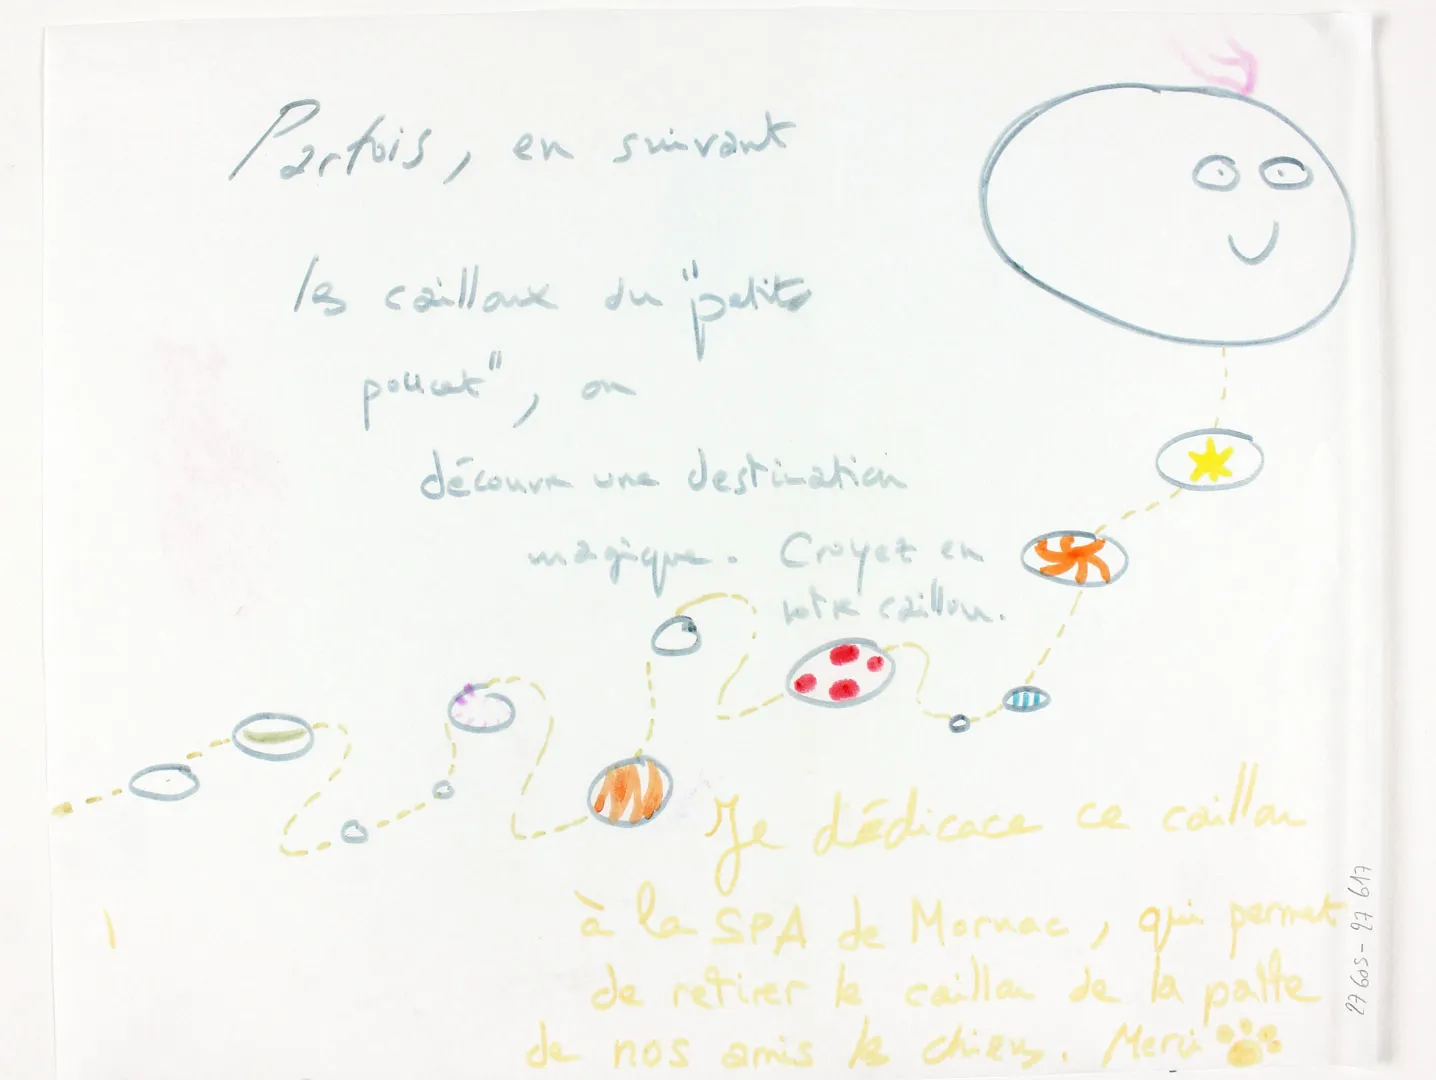 Parfois, en suivant
les cailloux du "petits
poucet", on
découvre une destination
magique. Croyez en
votre caillou.
Je dédicace ce caillou
à la SPA de Mornac, qui permet
de retirer le caillou de la patte
de nos amis les chiens. Merci
27605-27617